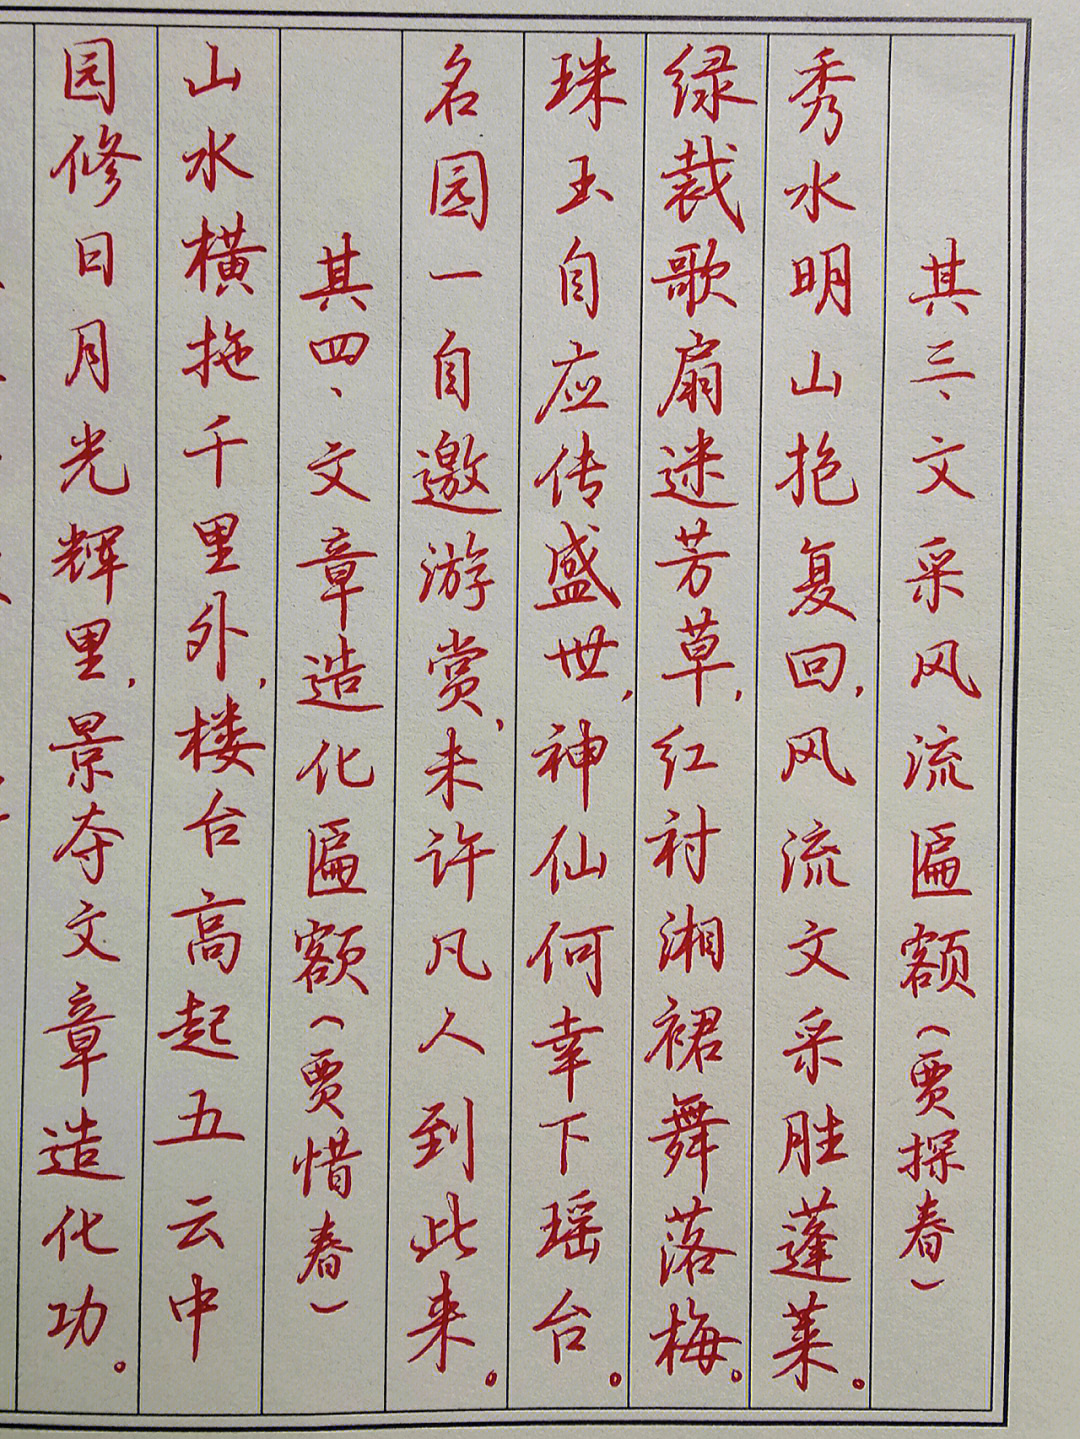 其三、文采风流匾额(贾探春)
秀水明山抱复回,风流文采胜蓬莱。
绿裁歌扇迷芳草,红衬湘裙舞落梅。
珠玉自应传盛世,神仙何幸下瑶台。
名园一自邀游赏,未许凡人到此来。
其四、文章造化匾额(贾惜春)
山水横拖千里外,楼台高起五云中
园修日月光辉里,景夺文章造化功。